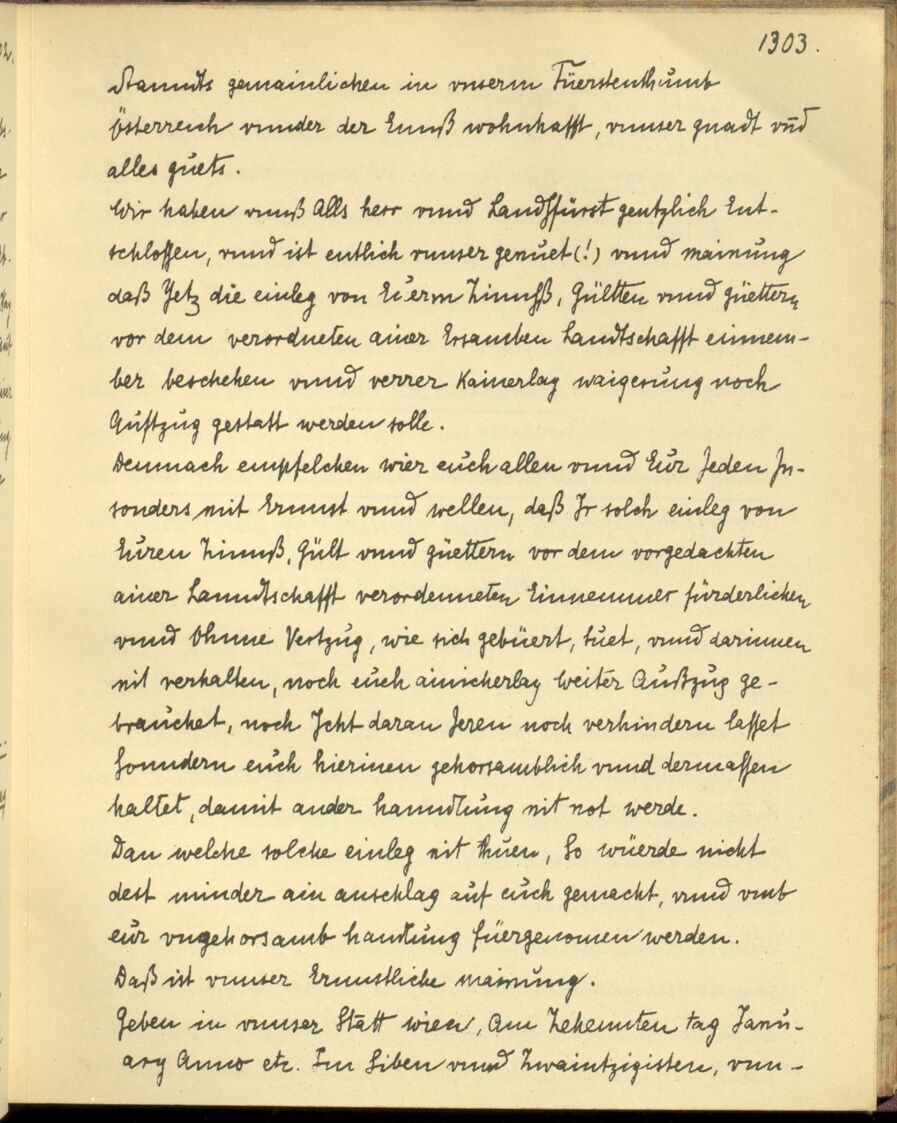 1303.
Stanndts gemainlichen in vnserm Füerstenthumb
Österreich vnnder der Ennß wohnhafft, vnnser gnadt vnd
alles guets.
Wir haben vnnß Alls herr vnnd Landsfürst gentzlich Ent-
schlossen, vnnd ist entlich vnnser gemuet (!) vnnd mainung
daß Yetz die einleg von Euerm Zinnß, Gültten vnnd güettern
vor dem verordneten ainer Ersamben Landtschafft einnem-
ber beschehen vnnd verrer Kainerlay waigerung noch
Auftzug gestatt werden solle.
Demnach empfelchen wier euch allen vnnd Eur Jeden In-
sonders mit Ernnst vnnd wellen, daß Ir solch einleg von
Euren Zinnß, Gült vnnd güettern vor dem vorgedachten
ainer Lanndtschafft verordenneten Einnemmer fürderlichen
vnnd Ohnne Vertzug, wie sich gebüert, tuet, vnnd darinnen
nit verhalten, noch euch ainicherlay Weiter Außzug ge-
brauchet, noch Icht daran Jeren noch verhindern lasset
Sonndern euch hierinen gehorsamblich vnnd dermassen
haltet, damit ander hanndlung nit not werde.
Dan welche solche einleg nit thuen, So wüerde nicht
dest minder ain anschlag auf euch gemacht, vnnd vmb
eur vngehorsamb handlung füergenomen werden.
Daß ist vnnser Ernnstliche mainung.
Geben in vnnser Statt wien, Am Zehennten tag Janu-
ary Anno etc. Im Siben vnnd Zwaintzigisten, vnn-